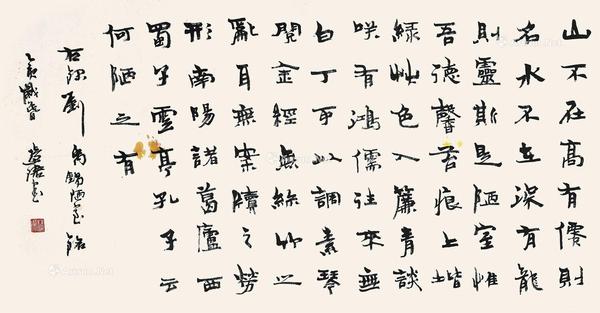 山不在高有僊則
名水不在深有龍
則靈斯是陋室惟
吾德馨苔痕上堦
綠艸色入簾青談
咲有鴻儒往來無
白丁可以調素琴
閱金經無絲竹之
亂耳無案牘之勞
形南陽諸葛廬西
蜀子雲亭孔子云
何陋之有
右錄劉禹錫陋室銘